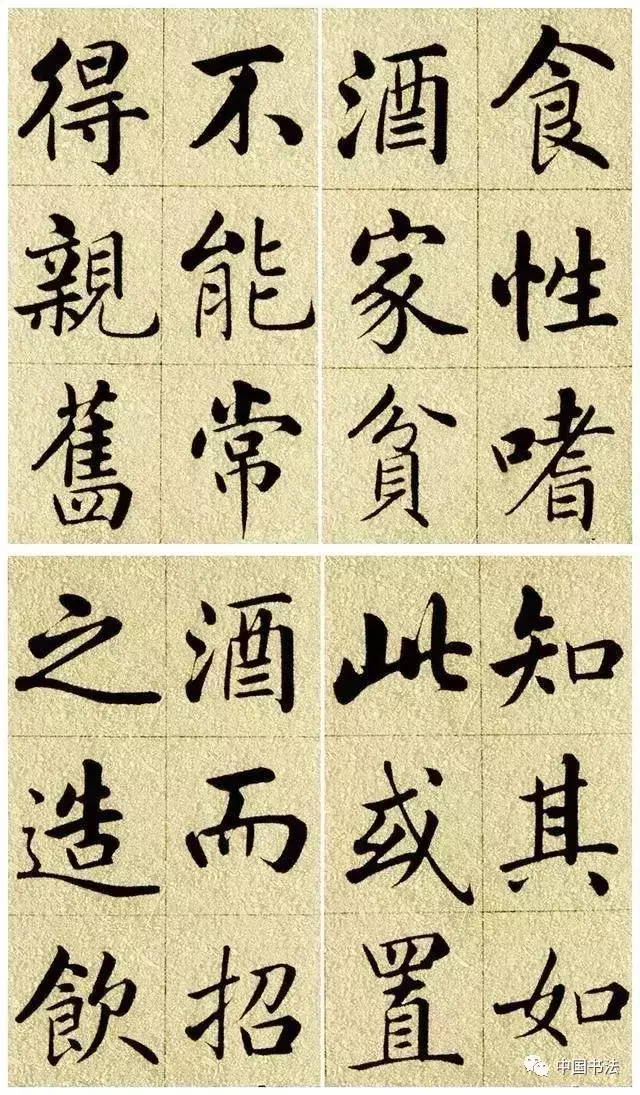 食性嗜
酒家貧
不能常
得親舊
知其如
此或置
酒而招
之造飲
中国书法